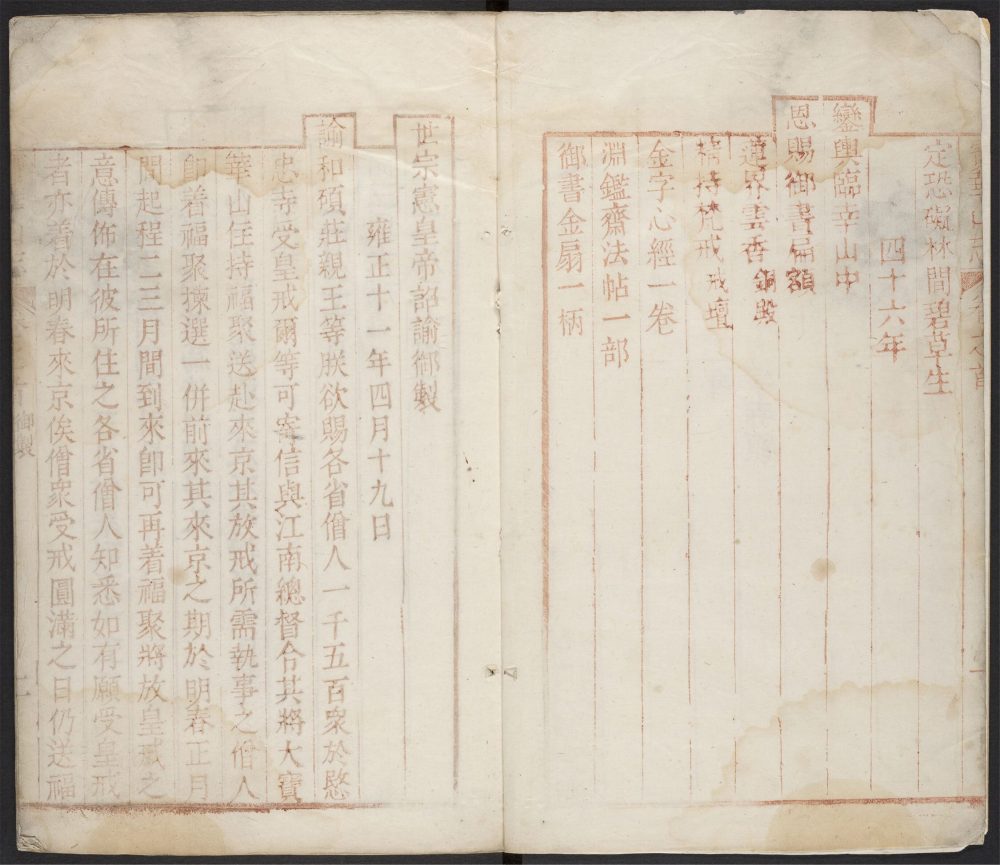 定恐礙林間碧草生
四十六年
鑾輿臨幸山中
恩賜御書扁額
蓮界雲香銅殿
精持梵戒戒壇
金字心經一卷
淵鑑齋法帖一部
御書金扇一柄
世宗憲皇帝詔諭御製
雍正十一年四月十九日
諭和碩莊親王等朕欲賜各省僧人一千五百眾於愍
忠寺受皇戒爾等可寄信與江南總督令其將大寶
華山住持福聚送赴來京其放戒所需執事之僧人
卽着福聚揀選一併前來其來京之期於明春正月
間起程二三月間到來卽可再着福聚將放皇戒之
意傳佈在彼所住之各省僧人知悉如有願受皇戒
者亦着於明春來京俟僧眾受戒圓滿之日仍送福
御製